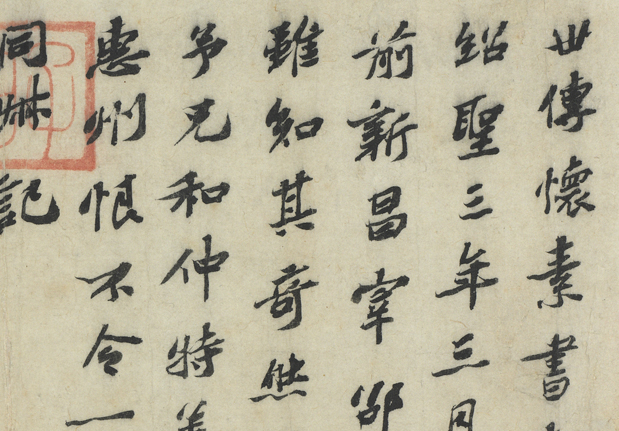 世傳懷素書
紹聖三年三月
前新昌宰邵
雖知其奇然
予兄和仲特
惠州恨不令一
同
記